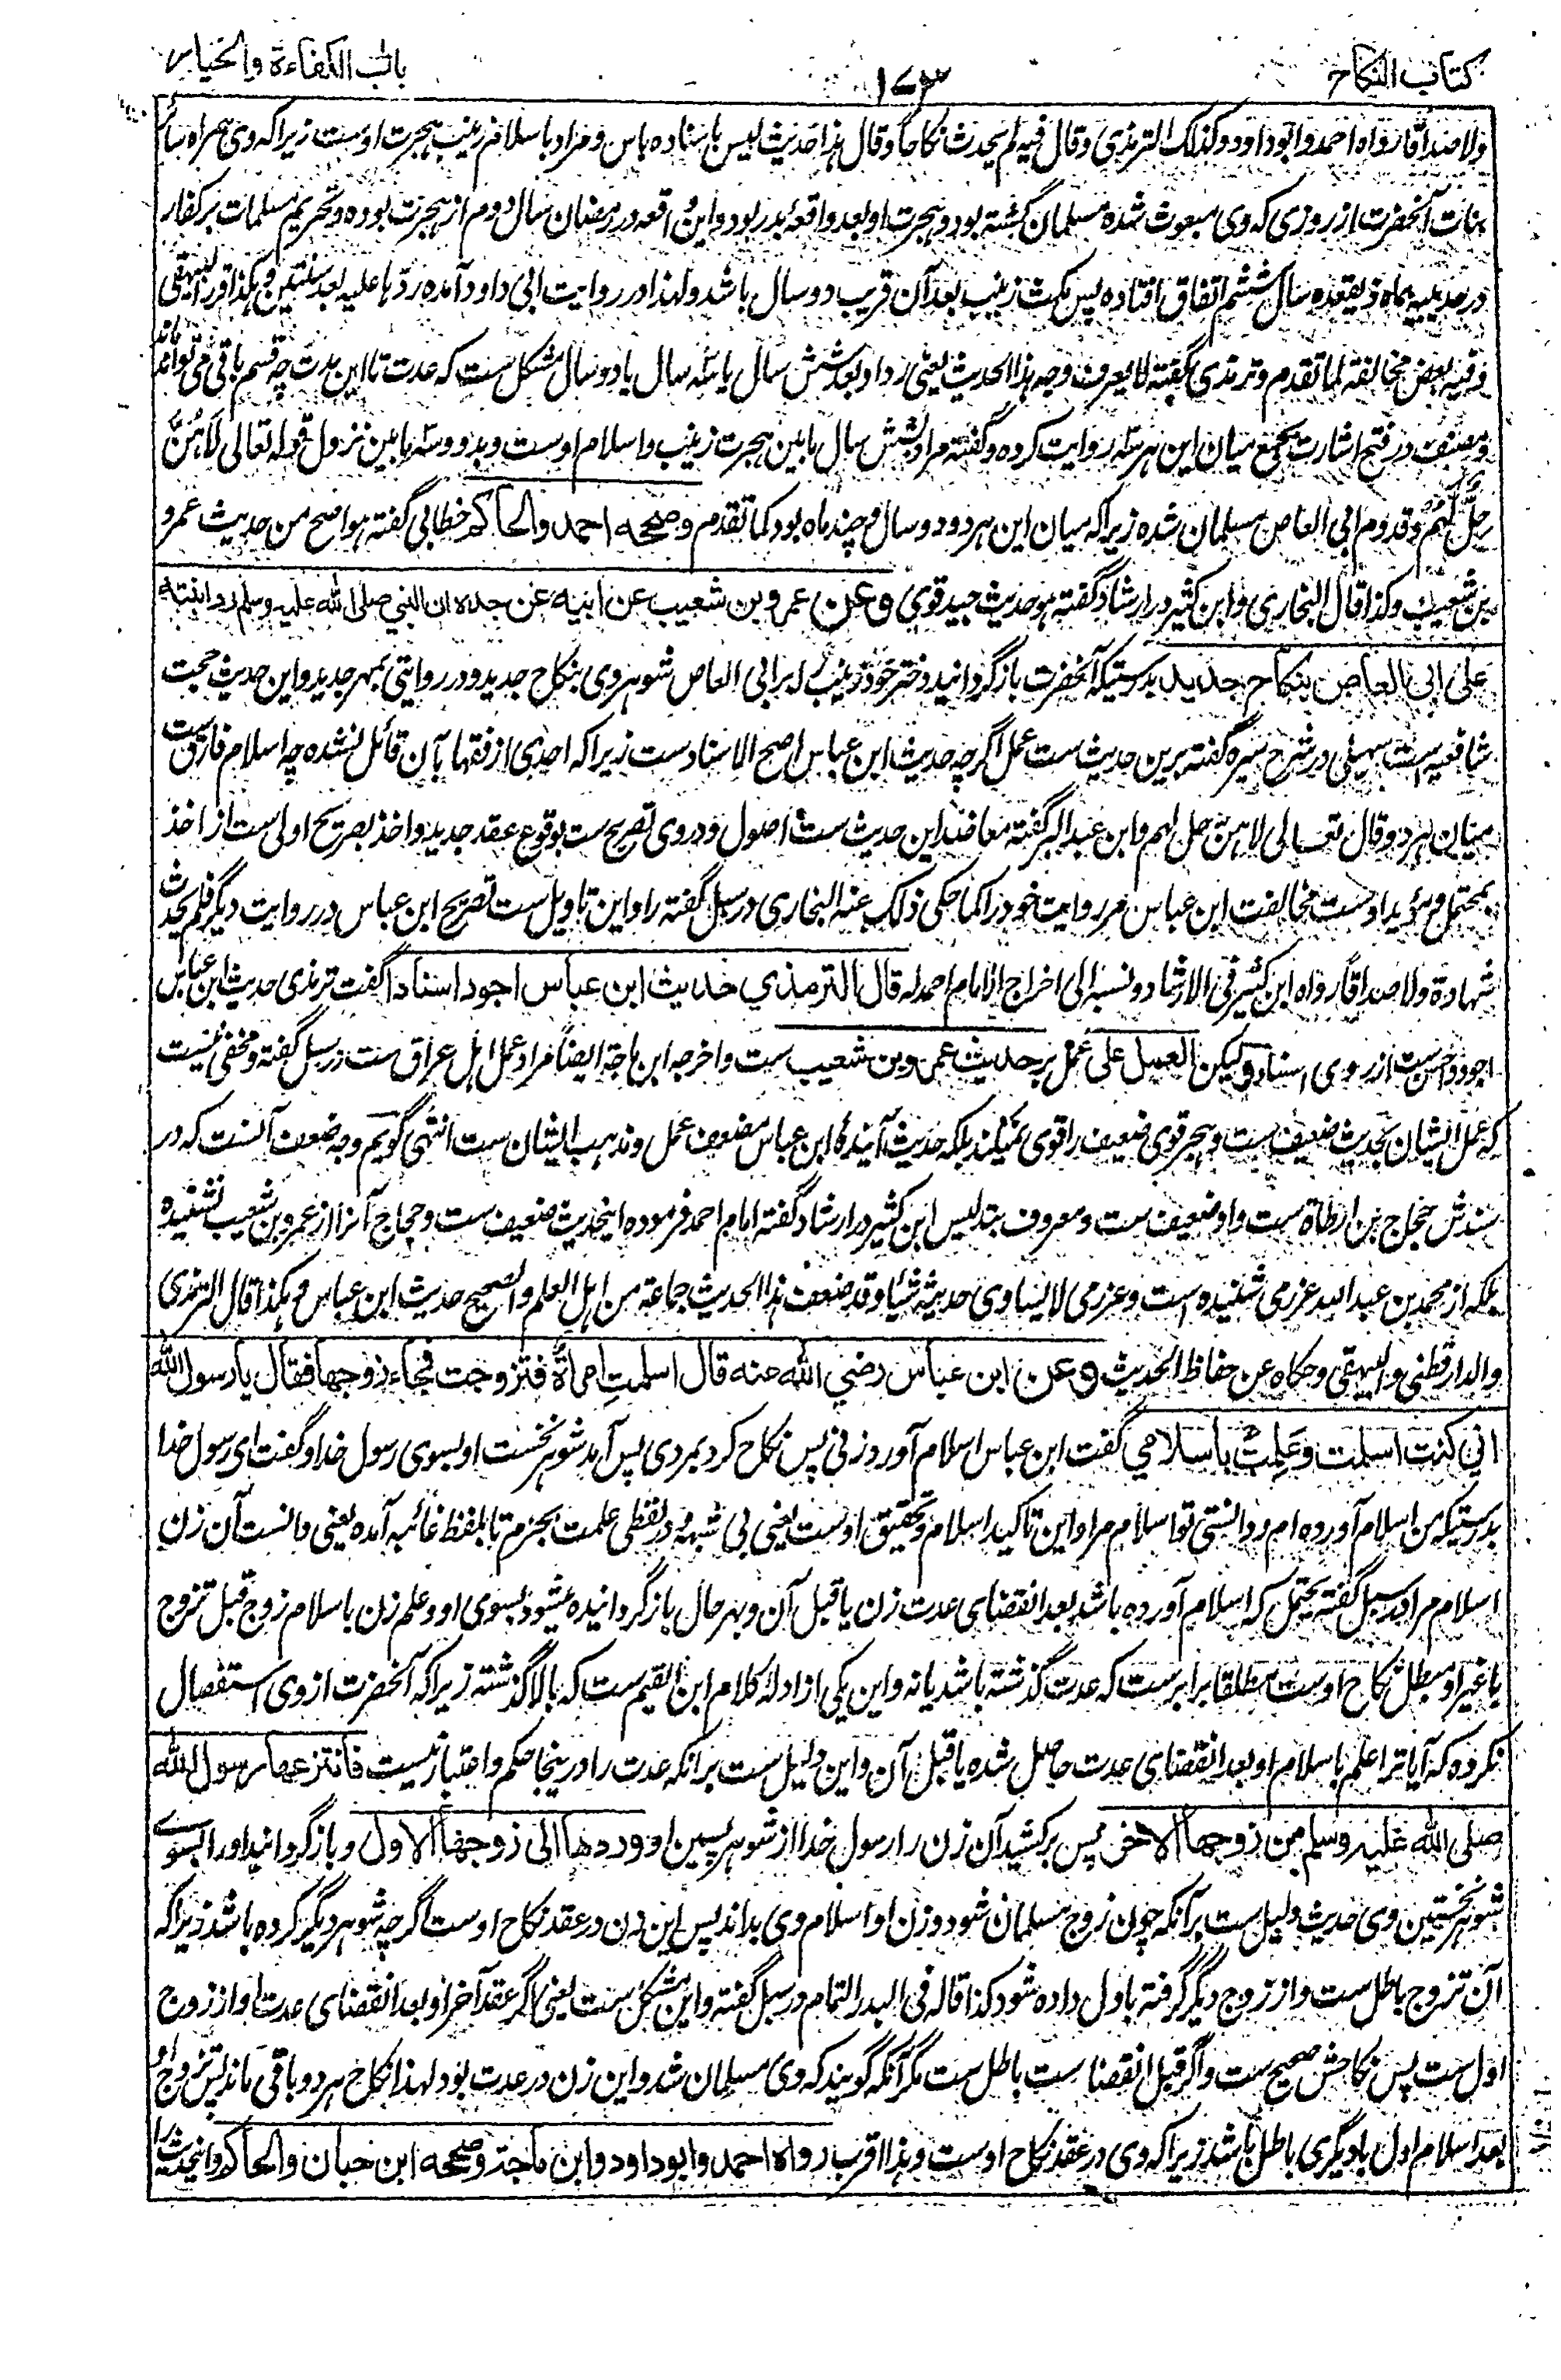 کتاب النکاح
۱۷۳
باب الکفاءة والخیار
ولا صداقا رواه احمد وابوداود وکذلک الترمذی وقال فیه لم یحدث نکاحا وقال هذا حدیث لیس باسناده باس ومراد باسلام زینب هجرت اوست زیراکه وی همراه سائر
بنات آنحضرت از روزی که وی مبعوث شده مسلمان گشته بود وهجرت او بعد واقعهٔ بدر بود واین واقعه در رمضان سال دوم از هجرت بوده وتحریم مسلمات بر کفار
در حدیبیه بماه ذیقعده سال ششم اتفاق افتاده پس مکث زینب بعد آن قریب دو سال باشد ولهذا در روایت ابی داود آمده ردّها علیه بعد سنتین وهکذا قرره البیهقی
وفیه بعض مخالفة لما تقدم وترمذی گفته لا یعرف وجه هذا الحدیث یعنی رد او بعد شش سال یا سه سال یا دو سال مشکل ست که عدت تا این مدت چه قسم باقی می تواند ماند
ومصنف در فتح اشارت بجمع میان این هر سه روایت کرده وگفته مراد بشش سال ما بین هجرت زینب واسلام اوست وبدو وسه ما بین نزول قوله تعالی لَا هُنَّ
حِلٌّ لَّهُمْ وقدوم ابی العاص مسلمان شده زیراکه میان این هر دو دو سال وچند ماه بود کما تقدم وصححه احمد والحاکم خطابی گفته هو اصح من حدیث عمرو
بن شعیب وکذا قال البخاری وابن کثیر در ارشاد گفته هو حدیث جید قوی وعن عمرو بن شعیب عن ابیه عن جده ان النبی صلی الله علیه وسلم رد ابنته
علی ابی العاص بنکاح جدید بدرستیکه آنحضرت باز گردانید دختر خود زینب را بر ابی العاص شوهر وی بنکاح جدید ودر روایتی بمهر جدید واین حدیث حجت
شافعیه است سهیلی در شرح سیره گفته برین حدیث ست عمل اگرچه حدیث ابن عباس اصح الاسناد ست زیراکه احدی از فقها بآن قائل نشده چه اسلام فارق ست
میان هر دو وقال تعالی لا هن حل لهم وابن عبد البر گفته معاضد این حدیث ست اصول ودر وی تصریح ست بوقوع عقد جدید واخذ بصریح اولی است از اخذ
بمحتمل ومؤید اوست مخالفت ابن عباس مر روایت خود را کما حکی ذلک عنه البخاری در سبل گفته راد این تاویل ست تصریح ابن عباس در روایت دیگر فلم یحدث
شهادة ولا صداقاً رواه ابن کثیر فی الارشاد ونسبه الی اخراج الامام احمد له قال الترمذی حدیث ابن عباس اجود اسنادا گفت ترمذی حدیث ابن عباس
اجود واحسن ست از روی اسناد ولیکن العمل علی عمل بر حدیث عمرو بن شعیب ست واخرجه ابن ماجة ایضاً مراد عمل اهل عراق ست در سبل گفته ومخفی نیست
که عمل ایشان بحدیث ضعیف ست وهجر قوی ضعیف را قوی نمیکند بلکه حدیث آینده ابن عباس مضعف عمل ومذهب ایشان ست انتهی گویم وجه ضعف آنست که در
سندش حجاج بن ارطاة ست واو ضعیف ست ومعروف بتدلیس ابن کثیر در ارشاد گفته امام احمد فرموده اینحدیث ضعیف ست وحجاج آنرا از عمرو بن شعیب نشنیده
بلکه از محمد بن عبدالله عزرمی شنیده است وعزرمی لا یساوی حدیثه شیئا وقد ضعف هذا الحدیث جماعة من اهل العلم والصحیح حدیث ابن عباس وهکذا قال الترمذی
والدارقطنی والبیهقی وحکاه عن حفاظ الحدیث وعن ابن عباس رضی الله عنه قال اسلمت امرأة فتزوجت فجاء زوجها فقال یا رسول الله
انی کنت اسلمت وعلمت باسلامی گفت ابن عباس اسلام آورد زنی پس نکاح کرد بمردی پس آمد شوهر نخست او بسوی رسول خدا وگفت ای رسول خدا
بدرستیکه من اسلام آورده ام ودانستی تو اسلام مرا واین تاکید اسلام وتحقیق اوست یعنی بی شبهه ودر لفظی علمت بجزم تا بلفظ غائبه آمده یعنی دانست آن زن
اسلام مرا در سبل گفته یحتمل که اسلام آورده باشد بعد انقضای عدت زن یا قبل آن وبهر حال باز گردانیده میشود بسوی او وعلم زن باسلام زوج قبل تزوج
با غیر او مبطل نکاح اوست مطلقا برابر ست که عدت گذشته باشد یا نه واین یکی از ادلهٔ کلام ابن القیم ست که بالا گذشته زیراکه آنحضرت از وی استفصال
نکرده که آیا ترا علم باسلام او بعد انقضای عدت حاصل شده یا قبل آن واین دلیل ست بر آنکه عدت را در ینجا حکم واعتبار نیست فانتزعها رسول الله
صلی الله علیه وسلم من زوجها الاخر پس برکشید آن زن را رسول خدا از شوهر پسین او وردها الی زوجها الاول وباز گردانید او را بسوی
شوهر نخستین وی حدیث دلیل ست بر آنکه چون زوج مسلمان شود وزن او اسلام وی بداند پس این زن در عقد نکاح اوست اگرچه شوهر دیگر کرده باشد زیراکه
آن تزوج باطل ست واز زوج دیگر گرفته باول داده شود کذا قاله فی البدر التمام در سبل گفته واین مشکل ست یعنی اگر عقد آخر او بعد انقضای عدت او از زوج
اول ست پس نکاحش صحیح ست واگر قبل انقضا ست باطل ست مگر آنکه گویند که وی مسلمان شد واین زن در عدت بود لهذا نکاح هر دو باقی ماند پس تزوج او
بعد اسلام اول با دیگری باطل باشد زیراکه وی در عقد نکاح اوست وهذا اقرب رواه احمد وابوداود وابن ماجة وصححه ابن حبان والحاکم واینحدیث را